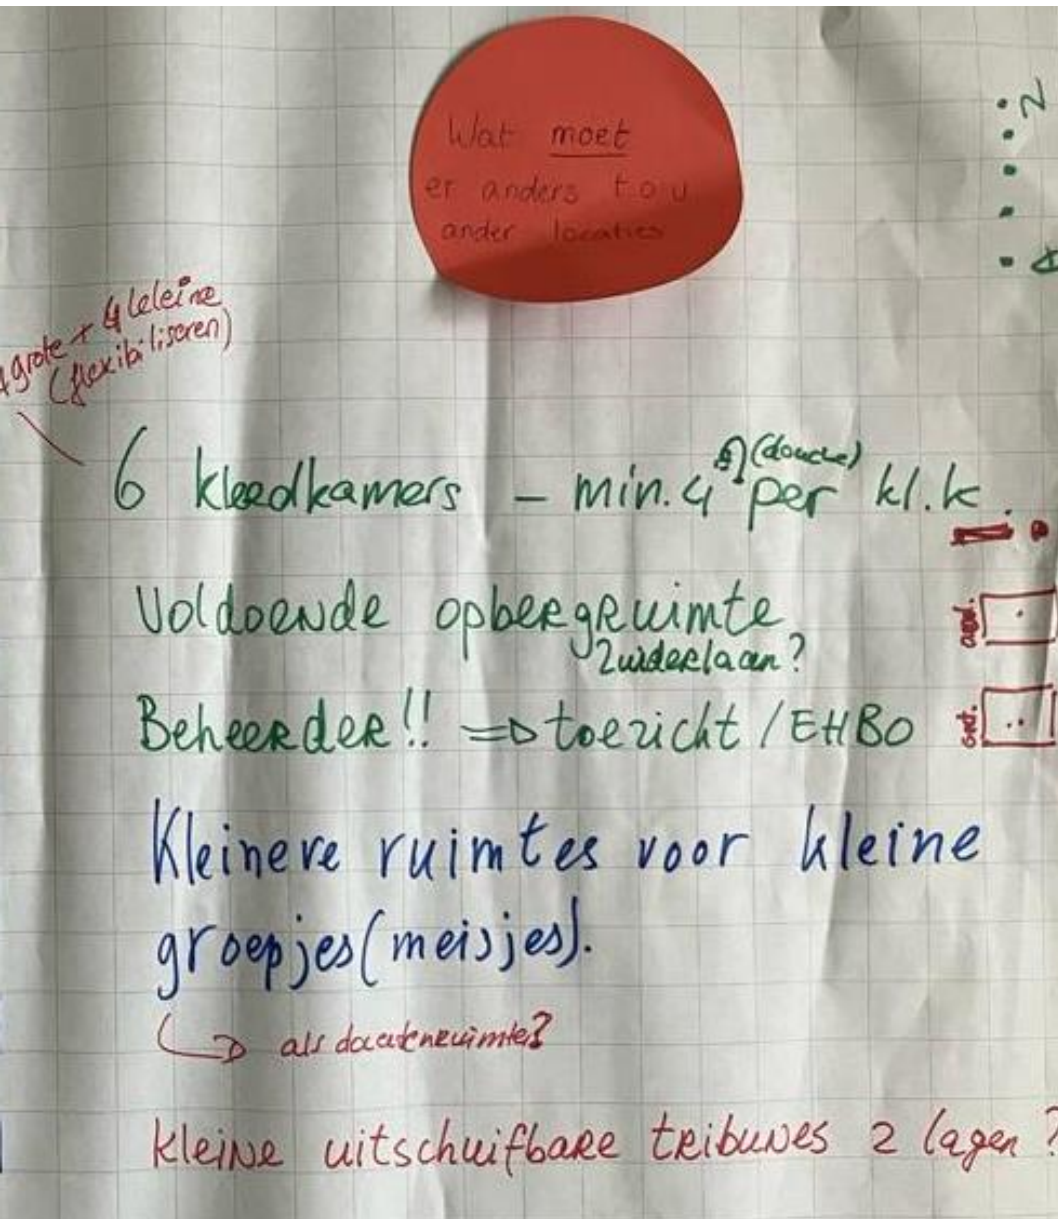 Wat moet
er anders t.o.v
ander locaties
grote + 4 kleine
(flexibiliseren)
6 kleedkamers - min. 4 (douche) per kl.k.
Voldoende opbergruimte
Zuiderlaan?
Beheerder!! => toezicht / EHBO
Kleinere ruimtes voor kleine
groepjes (meisjes).
↳ als docentenruimte?
kleine uitschuifbare tribunes 2 lagen ?